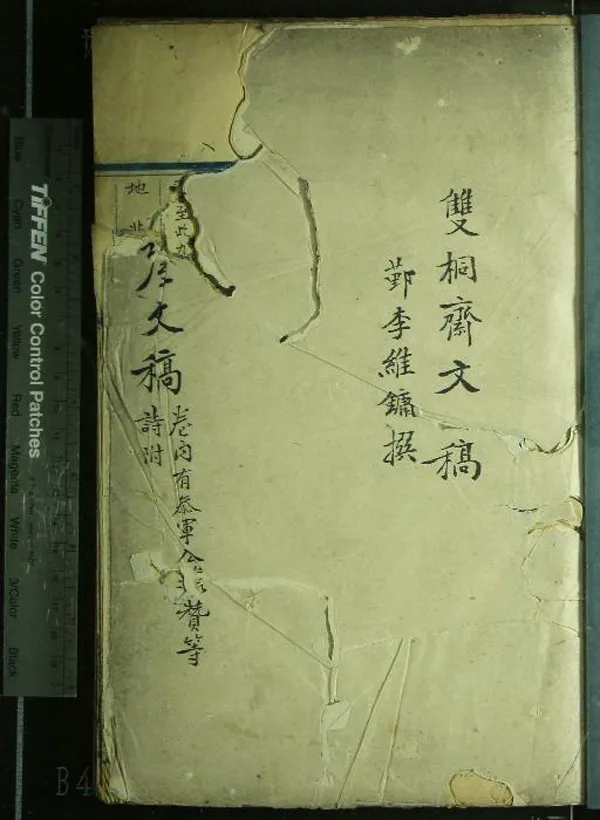 雙桐齋文稿
鄞李維鏞撰
至此
地
文稿
卷內有參軍公 贊等
詩附
TIFFEN Color Control Patches
Blue Cyan Green Yellow Red Magenta White 3/Color Black
B4